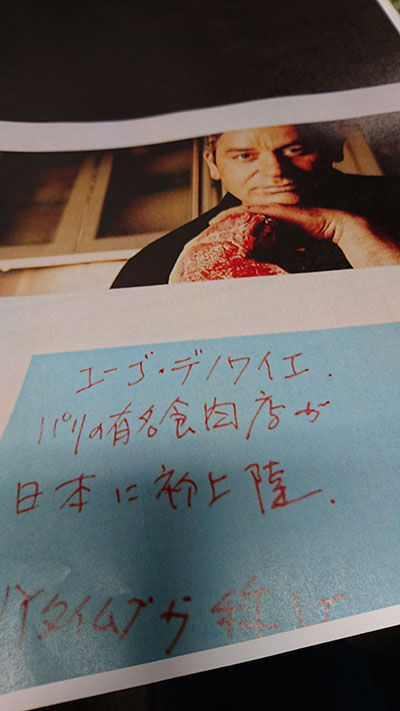 ユーゴ・デノワイエ.
パリの有名食肉店が
日本に初上陸.
NYタイムズが称して